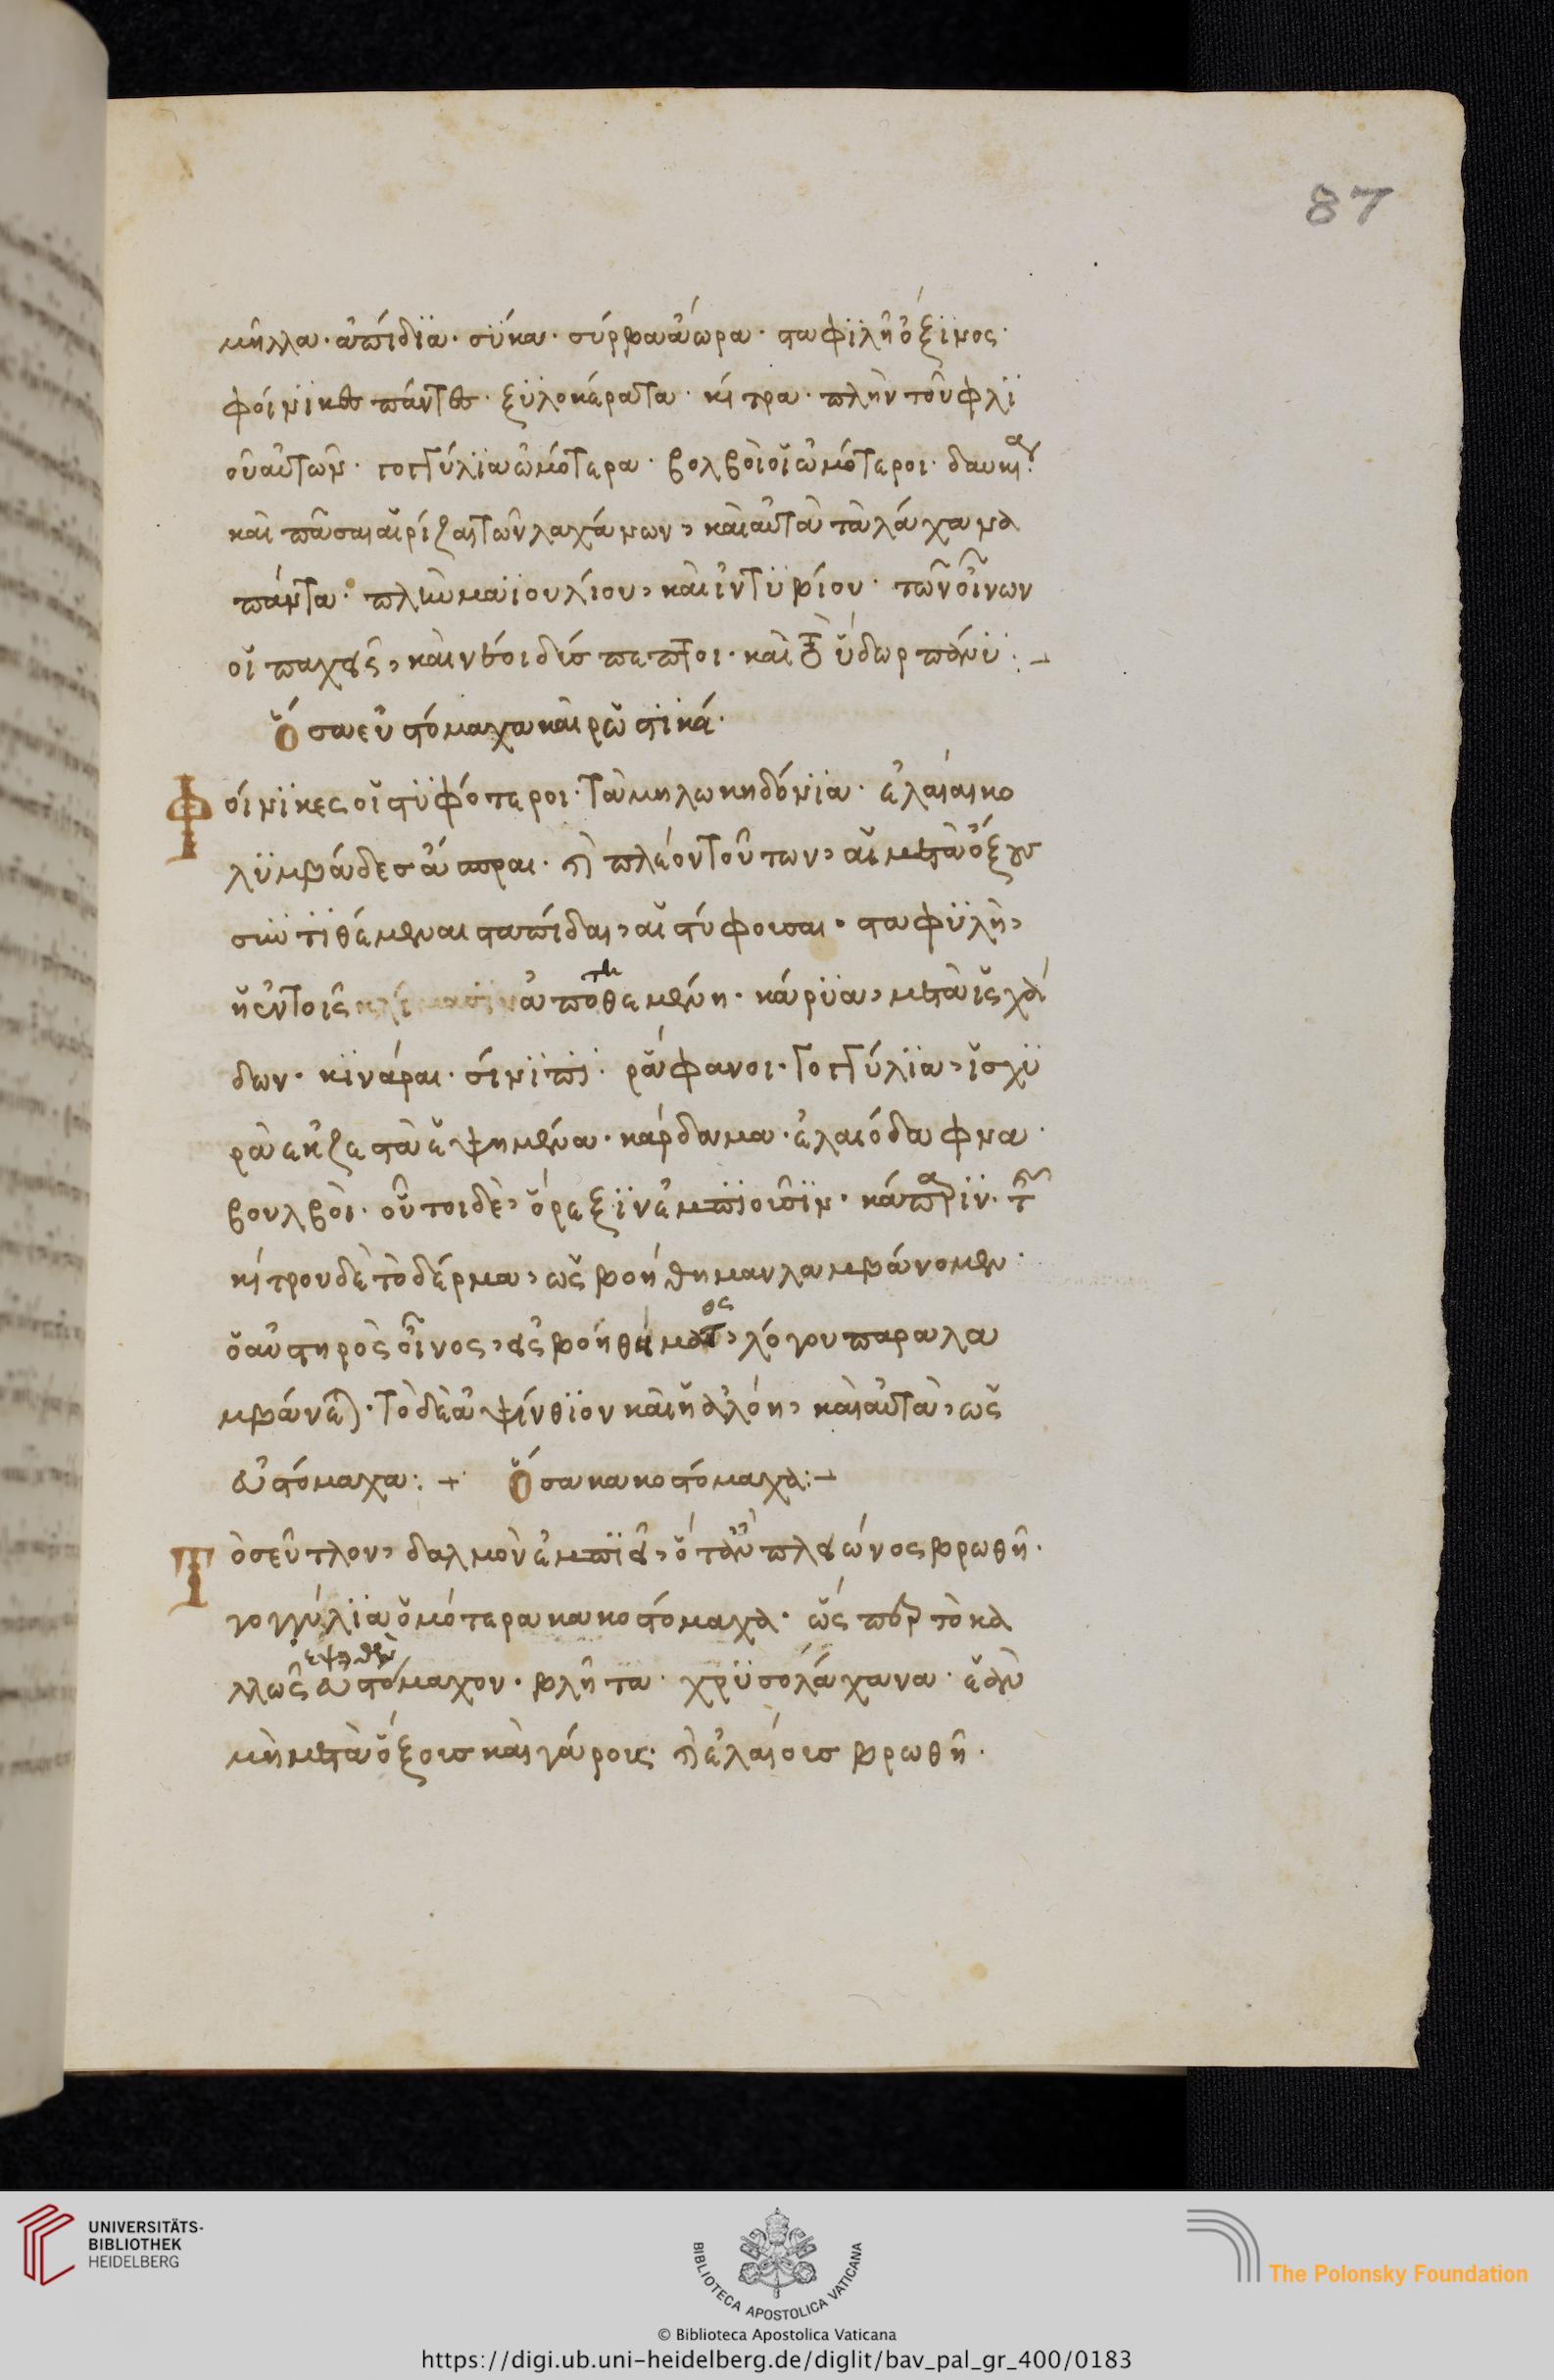 87
μῆλλα· ἀπίδϊα· σύκα· σύρβα ἄωρα· σταφϊλὴ ὄξϊνος·
φοίνϊκες πάντες· ξϋλοκέρατα· κίτρα· πλὴν τοῦ φλϊ
οῦ αὐτῶν· γογγύλϊα ὠμότερα· βολβοὶ οἱ ὠμότεροι· δαυκία·
καὶ πᾶσαι αἱ ρίζαι τῶν λαχάνων, καὶ αὐτὰ τὰ λάχανα
πάντα· πλὴν μαϊουλίου, καὶ ἰντϋβίου· τῶν οἴνων
οἱ παχεῖς, καὶ νέοι δύσπεπτοι· καὶ τὸ ὕδωρ πάνυ :-
Ὅσα εὐστόμαχα καὶ ρωστικά·
Φοίνϊκες οἱ στϋφότεροι· τὰ μηλωκηδόνϊα· ἐλαίαι κο
λϋμβάδες ἄσπραι· ἢ πλέον τούτων, αἱ μετὰ ὄξους
συντϊθέμεναι σταπίδαι, αἱ στύφουσαι· σταφϋλὴ,
ἡ ἐν τοῖς ἀποτηθεμένη· κάρϋα, μετὰ ἰσχά
δων· κϊνάραι· σίνϊπϊ· ράφανοι· γογγύλϊα, ἰσχϋ
ρὰ ἐκζεστὰ ἑψημένα· κάρδαμα· ἐλαιόδαφνα·
βουλβοὶ· οὗτοι δὲ, ὄρεξϊν ἐμπϊοιοῦσϊν· κάππαρϊν· τοῦ
κίτρου δὲ τὸ δέρμα, ὡς βοήθημαν λαμβάνομεν·
ὁ αὐστηρὸς οἶνος, εἰς βοηθήματος, λόγου παραλα
μβάνεται· τὸ δὲ ἀψίνθϊον καὶ ἡ ἀλόη, καὶ αὐτὰ, ὡς
εὐστόμαχα :+ Ὅσα κακοστόμαχα :-
Τὸ σεῦτλον, δαλμὸν ἐμπϊεῖ, ὅταν πλειώνος βρωθῆ·
γογγύλϊα ὁμότερα κακοστόμαχα· ὥσπερ τὸ κα
εψηθὲν
λλῶς εὐστόμαχον· βλῆτα· χρϋσολάχανα· ἐὰν
μὴ μετὰ ὄξους καὶ γάρους· ἢ ἐλαίους βρωθῆ·
UNIVERSITÄTS-
BIBLIOTHEK
HEIDELBERG
BIBLIOTECA APOSTOLICA VATICANA
The Polonsky Foundation
© Biblioteca Apostolica Vaticana
https://digi.ub.uni-heidelberg.de/diglit/bav_pal_gr_400/0183